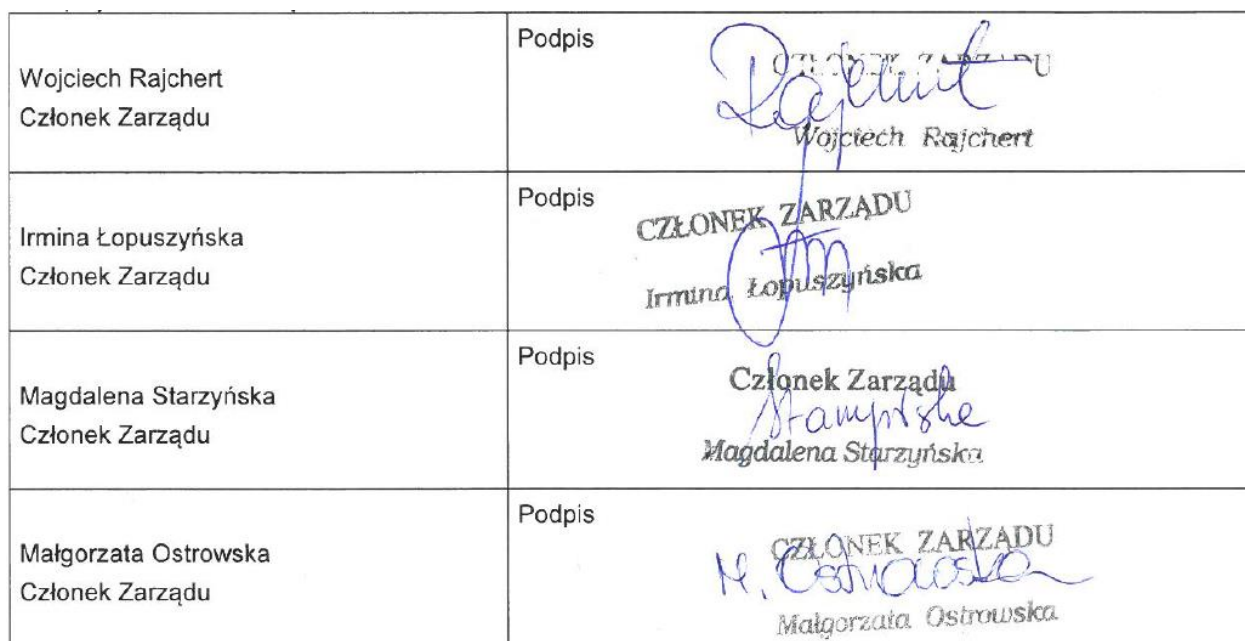 Wojciech Rajchert
Członek Zarządu
Podpis
CZŁONEK ZARZĄDU
Rajchert
Wojciech Rajchert
Irmina Łopuszyńska
Członek Zarządu
Podpis
CZŁONEK ZARZĄDU
Irmina Łopuszyńska
Magdalena Starzyńska
Członek Zarządu
Podpis
Członek Zarządu
Starzyńska
Magdalena Starzyńska
Małgorzata Ostrowska
Członek Zarządu
Podpis
CZŁONEK ZARZĄDU
M. Ostrowska
Małgorzata Ostrowska